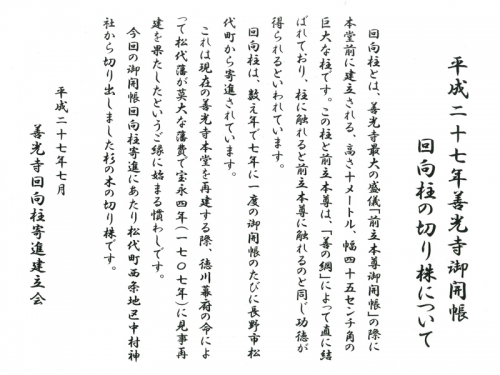 平成二十七年善光寺御開帳
回向柱の切り株について
回向柱とは、善光寺最大の盛儀「前立本尊御開帳」の際に
本堂前に建立される、高さ十メートル、幅四十五センチ角の
巨大な柱です。この柱と前立本尊は、「善の綱」によって直に結
ばれており、柱に触れると前立本尊に触れるのと同じ功徳が
得られるといわれています。
回向柱は、数え年で七年に一度の御開帳のたびに長野市松
代町から寄進されています。
これは現在の善光寺本堂を再建する際、徳川幕府の命によ
って松代藩が莫大な藩費で宝永四年(一七〇七年)に見事再
建を果たしたというご縁に始まる慣わしです。
今回の御開帳回向柱寄進にあたり松代町西条地区中村神
社から切り出しました杉の木の切り株です。
平成二十七年七月
善光寺回向柱寄進建立会